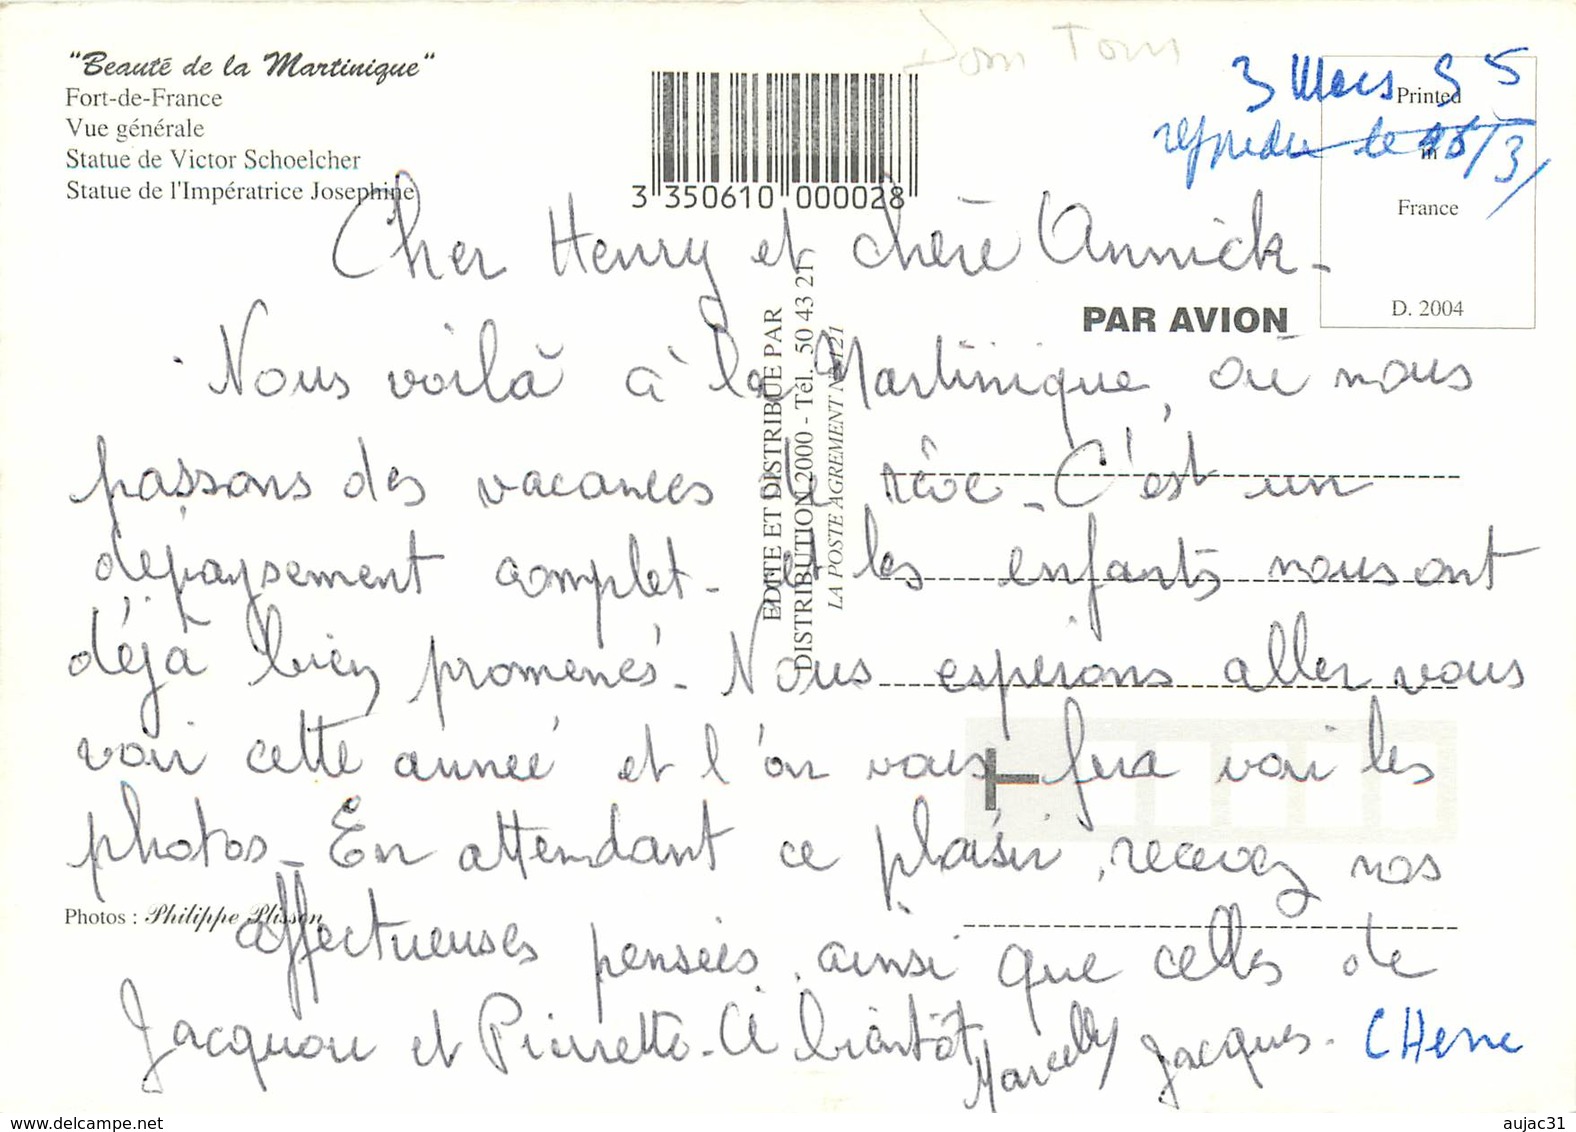 "Beauté de la Martinique"
Fort-de-France
Vue générale
Statue de Victor Schoelcher
Statue de l'Impératrice Josephine
3 350610 000028
Dom Tom
3 Mars 95
le /3/
Printed
in
France
D. 2004
PAR AVION
EDITE ET DISTRIBUE PAR
DISTRIBUTION 2000 - Tél. 50 43 21
LA POSTE AGREMENT N°
Cher Henry et chère Annick -
Nous voilà à la Martinique, où nous
passons des vacances de rêve - C'est un
dépaysement complet - et les enfants nous ont
déjà bien promenés - Nous esperons aller vous
voir cette année et l'on vous fera voir les
photos - En attendant ce plaisir, recevez nos
affectueuses pensées, ainsi que celles de
Jacquou et Pierrette - A bientôt
Marcelly Jacques.
Photos : Philippe Plisson
T
aujac31
www.delcampe.net